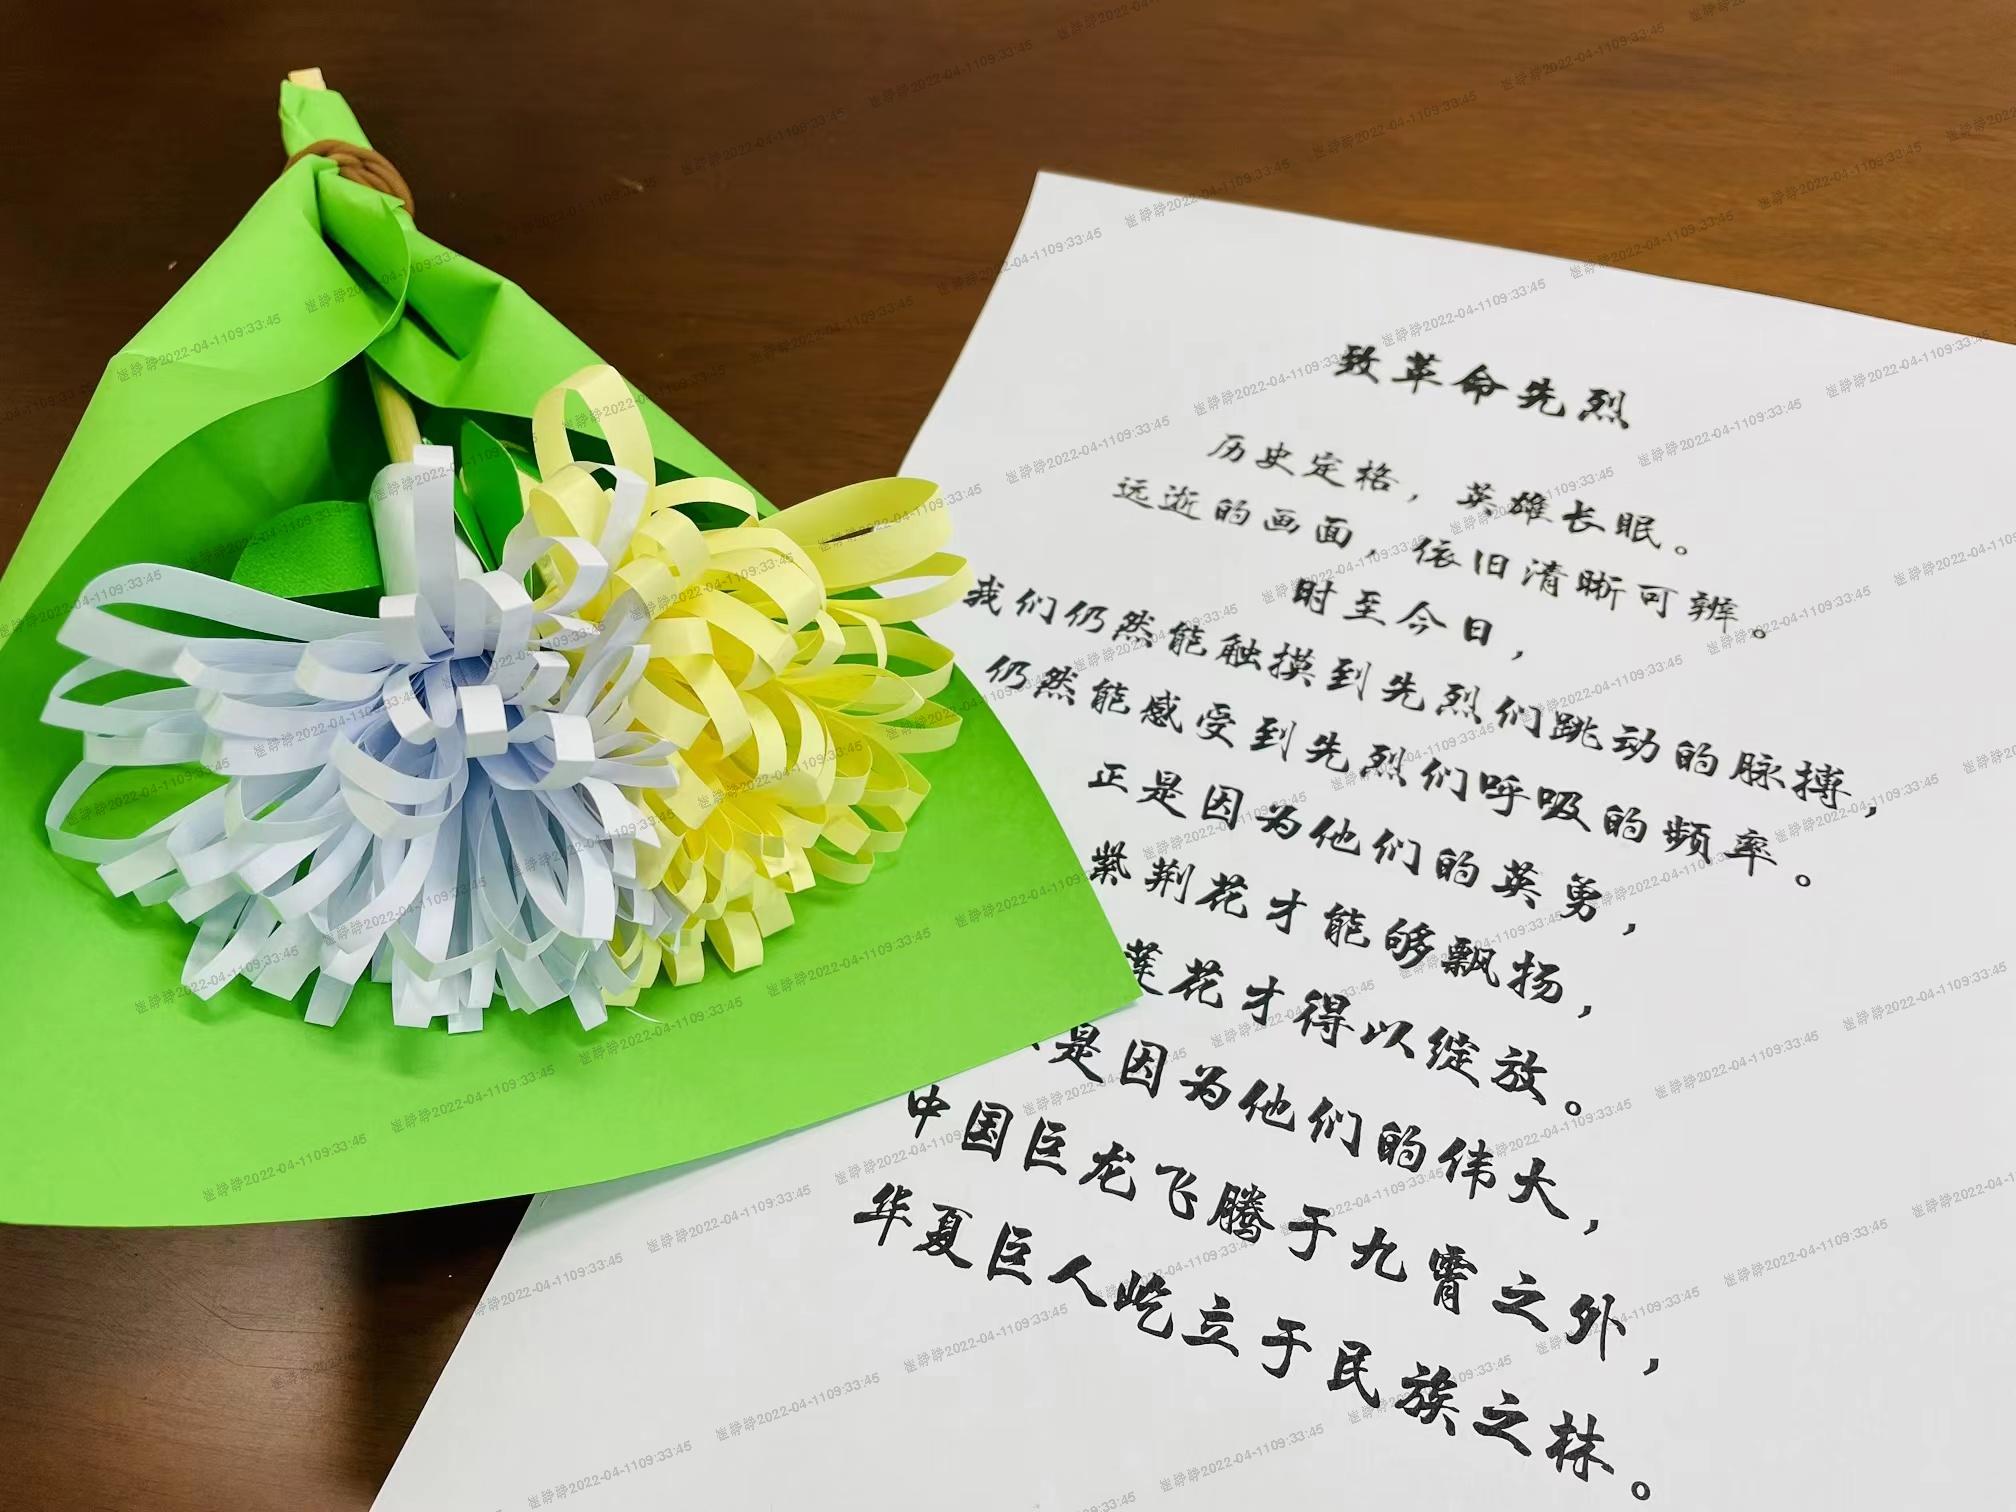 致革命先烈
历史定格，英雄长眠。
远逝的画面，依旧清晰可辨。
时至今日，
我们仍然能触摸到先烈们跳动的脉搏，
仍然能感受到先烈们呼吸的频率。
正是因为他们的英勇，
紫荆花才能够飘扬，
莲花才得以绽放。
是因为他们的伟大，
中国巨龙飞腾于九霄之外，
华夏巨人屹立于民族之林。
崔睁睁2022-04-1109:33:45